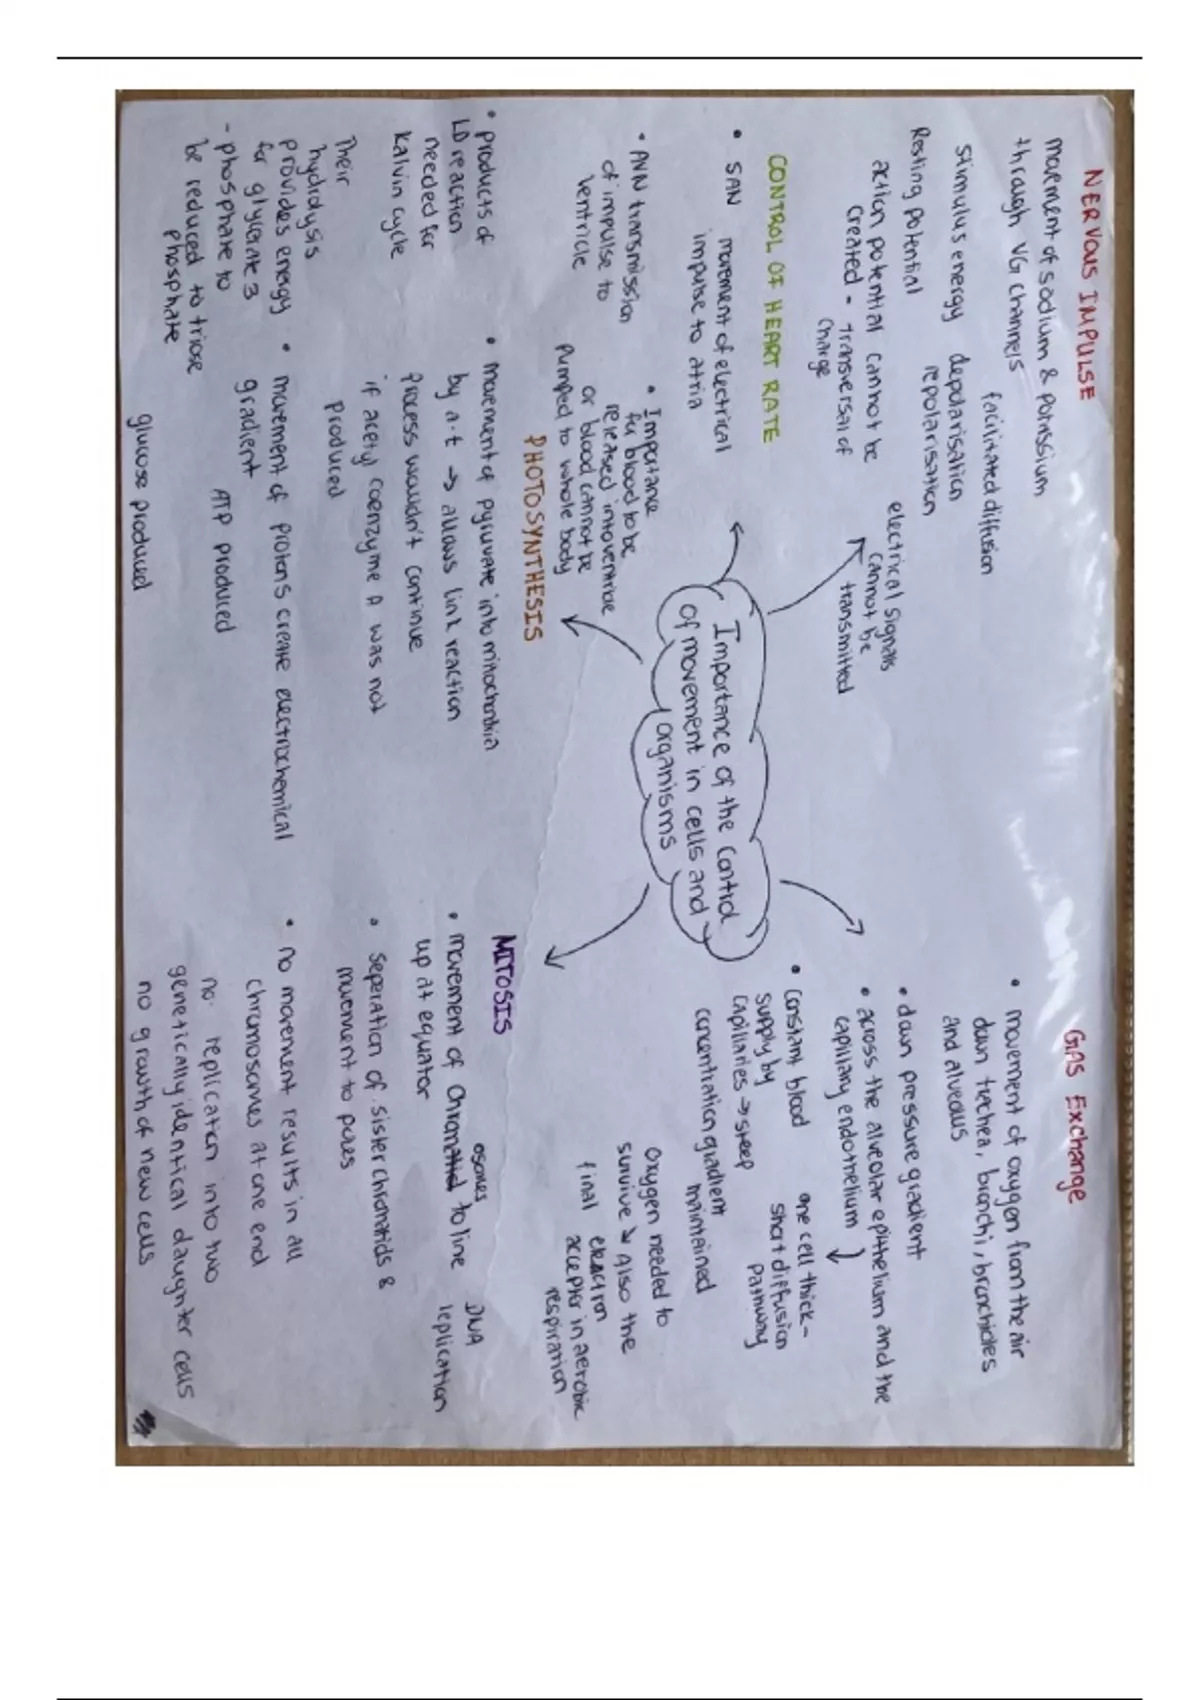 NERVOUS IMPULSE
movement of sodium & potassium
through VG channels
facilitated diffusion
Stimulus energy depolarisation
repolarisation
Resting potential
action potential cannot be
created - transversal of
charge
electrical signals
cannot be
transmitted
CONTROL OF HEART RATE
• SAN movement of electrical
impulse to atria
• AVN transmission
of impulse to
ventricle
• Importance
for blood to be
released into ventricle
or blood cannot be
pumped to whole body
Importance of the control
of movement in cells and
organisms
GAS Exchange
• movement of oxygen from the air
down trachea, bronchi, bronchioles
and alveolus
• down pressure gradient
• across the alveolar epithelium and the
capillary endothelium
one cell thick -
short diffusion
pathway
• constant blood
supply by
capillaries → steep
concentration gradient
maintained
oxygen needed to
survive → also the
final electron
acceptor in aerobic
respiration
PHOTOSYNTHESIS
• products of
LD reaction
needed for
Kalvin cycle
Their
hydrolysis
provides energy
for glycerate 3
- phosphate to
be reduced to triose
phosphate
• movement of pyruvate into mitochondria
by a.t → allows link reaction
process wouldn't continue
if acetyl coenzyme A was not
produced
• movement of protons create electrochemical
gradient
ATP produced
glucose produced
MITOSIS
• movement of chromosomes to line
up at equator
DNA
replication
• Seperation of sister chromatids &
movement to poles
• no movement results in all
chromosomes at one end
no. replication into two
genetically identical daughter cells
no growth of new cells